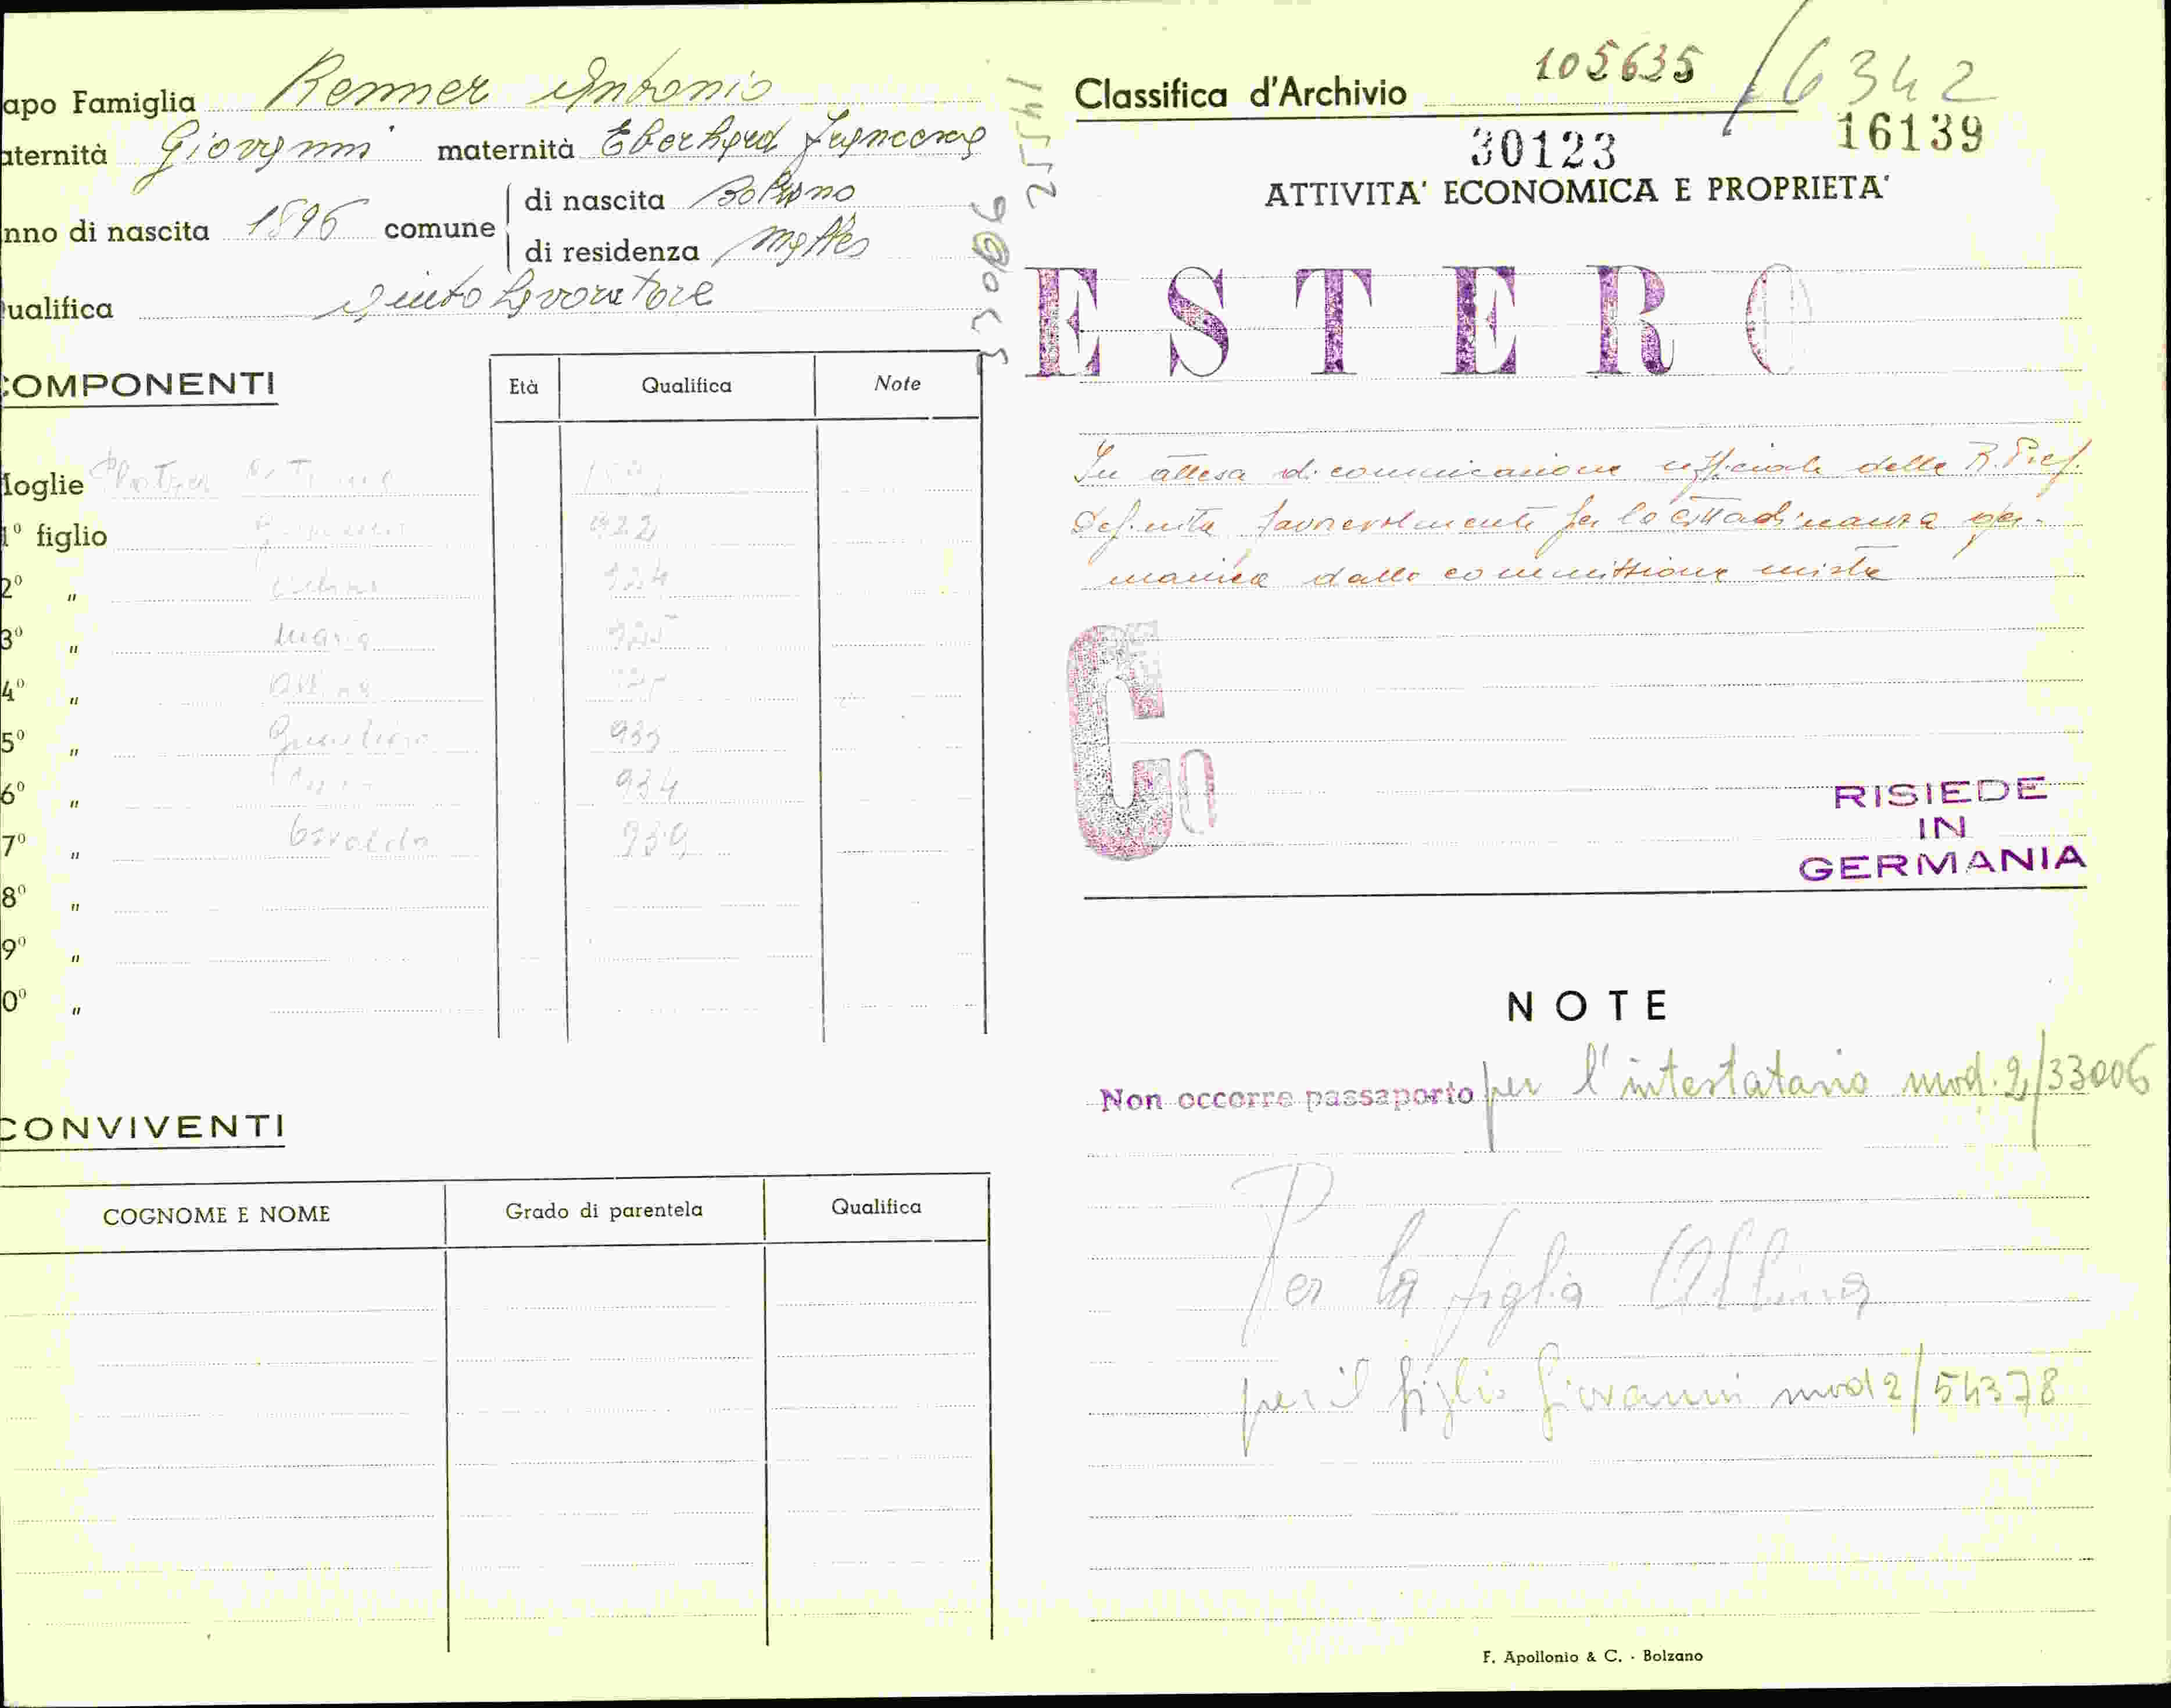 apo Famiglia Renner Antonio
aternità Giovanni maternità Eberhard Francesca
nno di nascita 1896 comune di nascita Bolzano
di residenza Malles
ualifica aiuto lavoratore
33006
25541
COMPONENTI Età Qualifica Note
Moglie
1º figlio 922
2º " 924
3º " Maria 925
4º " Albina
5º " 933
6º " 934
7º " Osvaldo 939
8º "
9º "
0º "
CONVIVENTI
COGNOME E NOME Grado di parentela Qualifica
Classifica d'Archivio 105635 /6342
30123 16139
ATTIVITA' ECONOMICA E PROPRIETA'
ESTERO
In attesa di comunicazione ufficiale della R. Pref.
definita favorevolmente per la cittadinanza ger-
manica dalla commissione mista
Co
RISIEDE
IN
GERMANIA
NOTE
Non occorre passaporto per l'intestatario mod. 2/33006
Per la figlia Albina
per il figlio Giovanni mod 2/54378
F. Apollonio & C. - Bolzano